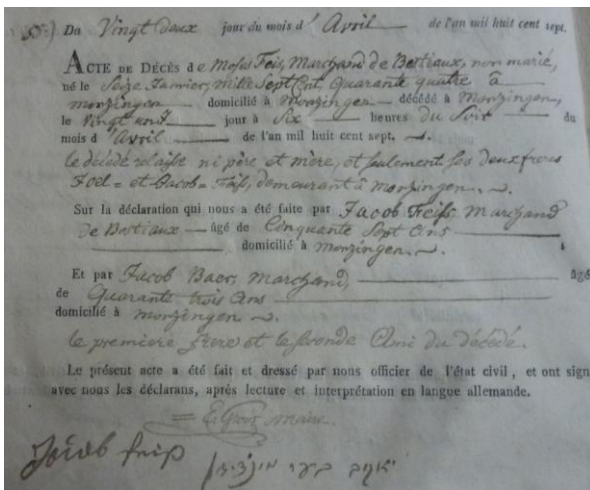 Du Vingt deux jour du mois d'Avril de l'an mil huit cent sept.
ACTE DE DÉCÈS de Moses Feis, Marchand de Bestiaux, non marié,
né le Seize Janvier, Mille Sept Cent, Quarante quatre à
monzingen domicilié à Monzingen décédé à Monzingen,
le Vingt un jour à Six heures du Soir du
mois d'Avril de l'an mil huit cent sept.
le décédé relaisse ni père et mère, et seulement ses deux freres
Joël = et Jacob = Feis, demeurant à monzingen.
Sur la déclaration qui nous a été faite par Jacob Feis, Marchand
de Bestiaux âgé de Cinquante Sept ans
domicilié à monzingen.
Et par Jacob Baer, Marchand, âgé
de Quarante trois ans
domicilié à monzingen
le premiere frere et le seconde Ami du décédé.
Le présent acte a été fait et dressé par nous officier de l'état civil, et ont sign
avec nous les déclarans, après lecture et interprétation en langue allemande.
maire.
Jacob feis יאקב בער